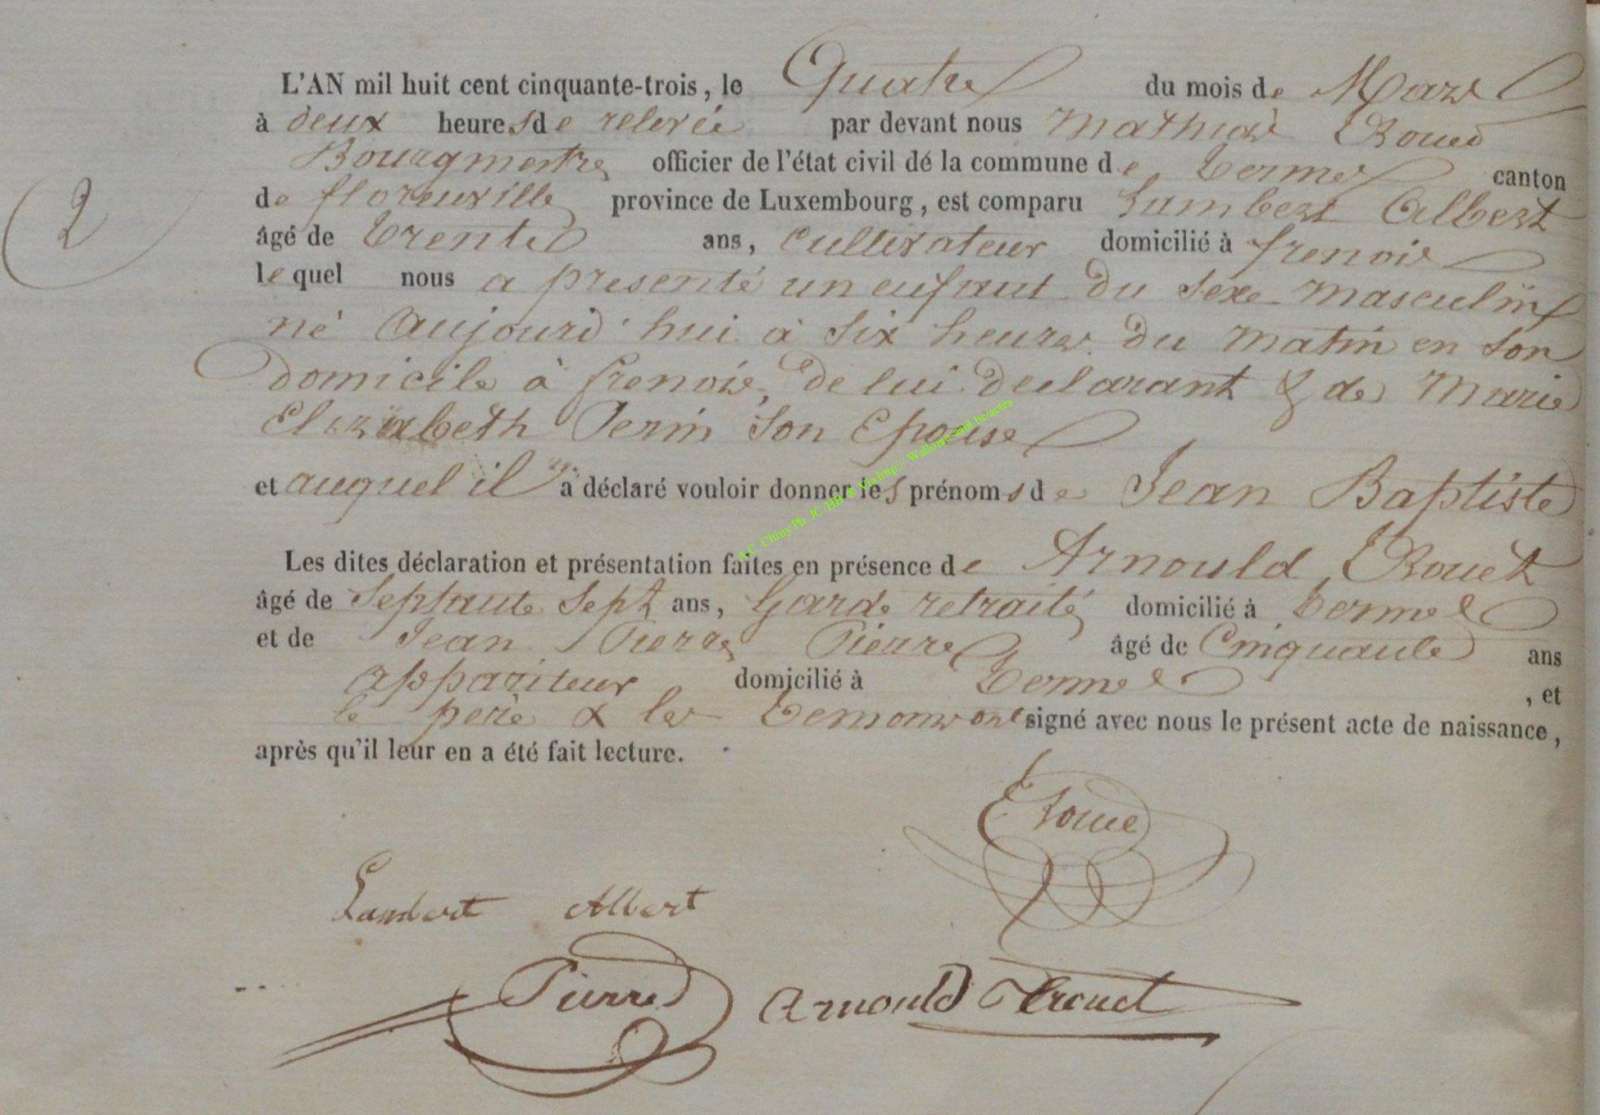 L'AN mil huit cent cinquante-trois, le Quatre du mois de Mars
à deux heures de relevée par devant nous Mathias Roued
Bourgmestre officier de l'état civil dé la commune de termes canton
2
de florenville province de Luxembourg, est comparu Lambert Albert
âgé de trente ans, cultivateur domicilié à frenois
lequel nous a presenté un enfant du sexe masculin
né aujourd'hui à six heures du matin en son
domicile à frenois, de lui declarant & de Marie
Elizabeth Perin son Epouse
et auquel il a déclaré vouloir donner les prénoms de Jean Baptiste
Les dites déclaration et présentation faites en présence de Arnould
âgé de Septante Sept ans, Garde retraité domicilié à termes
et de Jean Pierre Pierre âgé de Cinquante ans
appariteur domicilié à termes, et
le père & les temoins ont signé avec nous le présent acte de naissance,
après qu'il leur en a été fait lecture.
Lambert Albert
Pierre Arnould